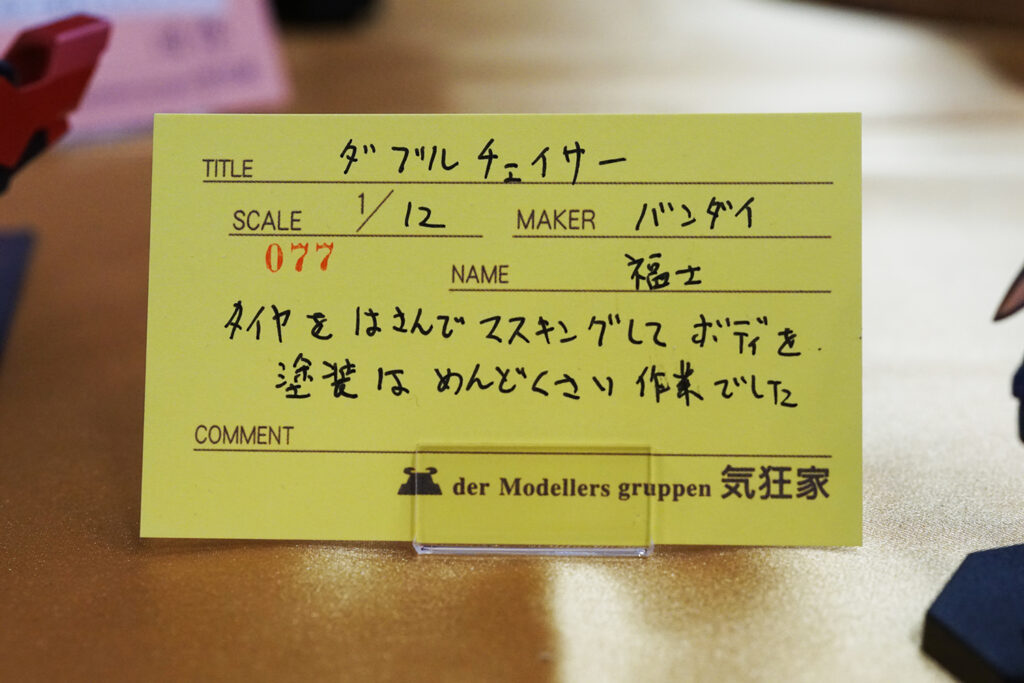 TITLE ダブルチェイサー
SCALE 1/12 MAKER バンダイ
077
NAME 福士
タイヤをはさんでマスキングしてボディを
塗装はめんどくさい作業でした
COMMENT
der Modellers gruppen 気狂家